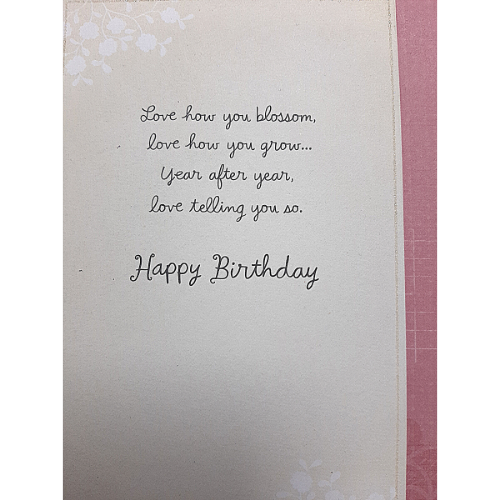 Love how you blossom,
love how you grow...
Year after year,
love telling you so.
Happy Birthday